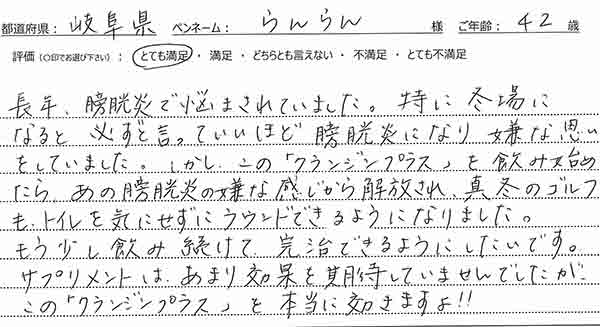 都道府県： 岐阜県 ペンネーム： らんらん 様 ご年齢： 42 歳
評価（○印でお選び下さい） とても満足 ・ 満足 ・ どちらとも言えない ・ 不満足 ・ とても不満足
長年、膀胱炎で悩まされていました。特に冬場に
なると必ずと言っていいほど膀胱炎になり嫌な思い
をしていました。しかし、この「クランジンプラス」を飲み始め
たら、あの膀胱炎の嫌な感じから解放され、真冬のゴルフ
も、トイレを気にせずにラウンドできるようになりました。
もう少し飲み続けて、完治できるようにしたいです。
サプリメントは、あまり効果を期待していませんでしたが、
この「クランジンプラス」を本当に効きますよ!!